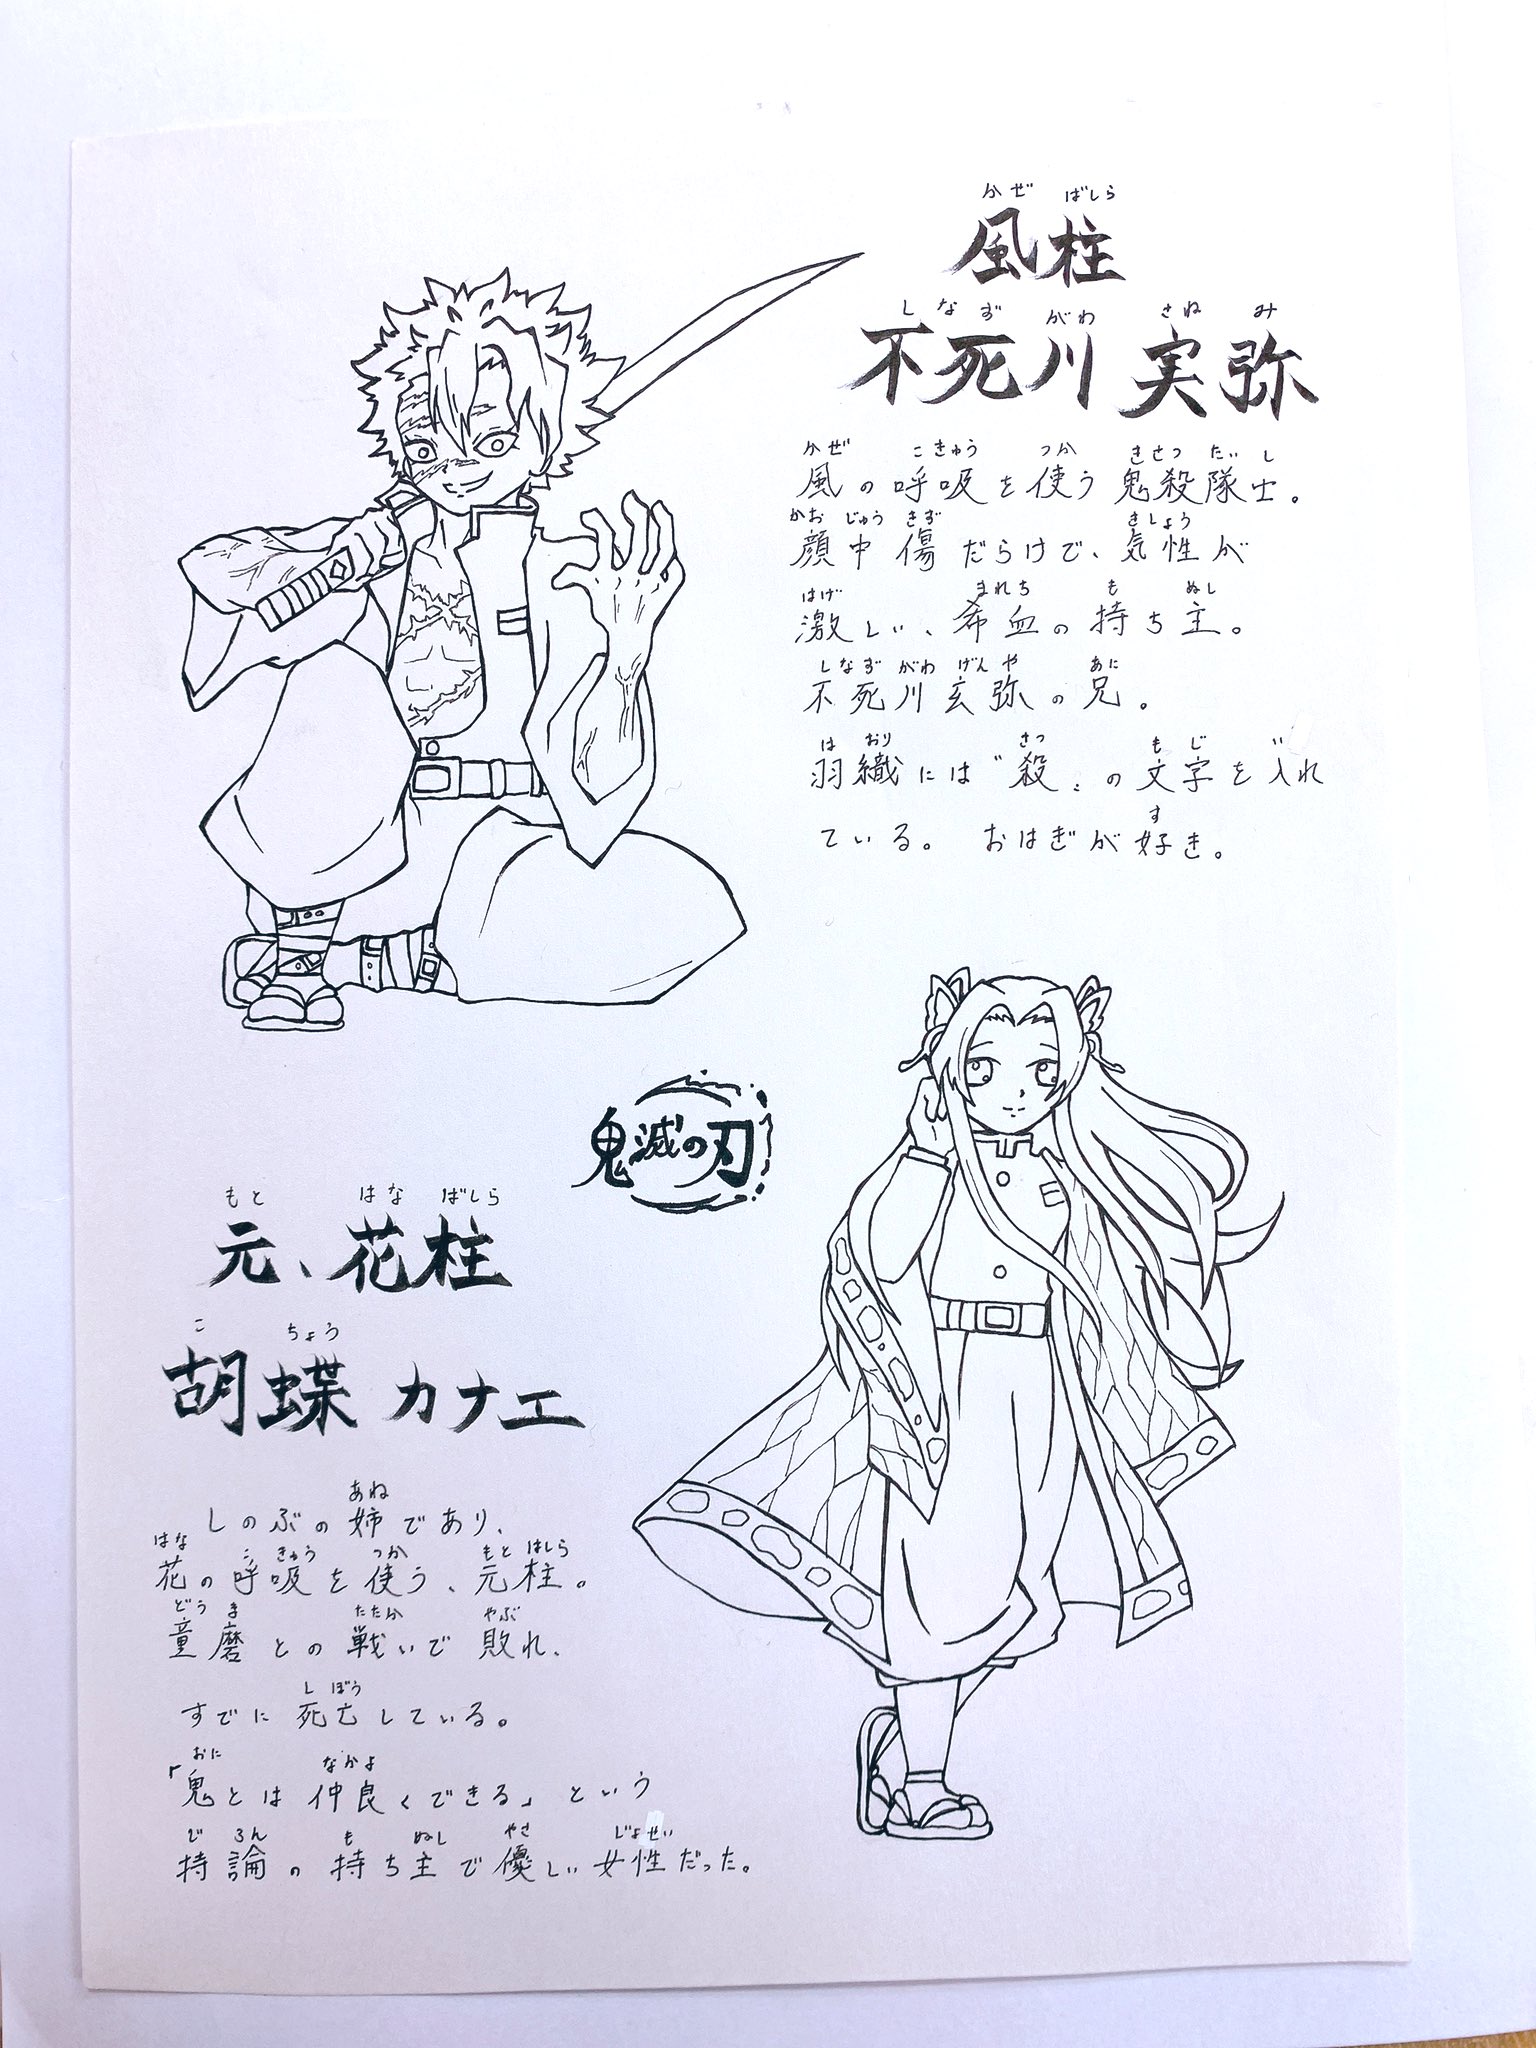 かぜ ばしら
風柱
しなずがわ さねみ
不死川 実弥
かぜ こきゅう つか きさつたいし
風の呼吸を使う鬼殺隊士。
かおじゅうきず きしょう
顔中傷だらけで、気性が
はげ まれち も ぬし
激しい、希血の持ち主。
しなずがわげんや あに
不死川玄弥の兄。
はおり さつ もじ い
羽織には〝殺〟の文字を入れ
す
ている。おはぎが好き。
鬼滅の刃
もと はなばしら
元、花柱
こちょう
胡蝶 カナエ
あね
しのぶの姉であり、
はな こきゅう つか もとはしら
花の呼吸を使う、元柱。
どうま たたか やぶ
童磨との戦いで敗れ、
しぼう
すでに死亡している。
おに なかよ
「鬼とは仲良くできる」という
じろん も ぬし やさ じょせい
持論の持ち主で優しい女性だった。